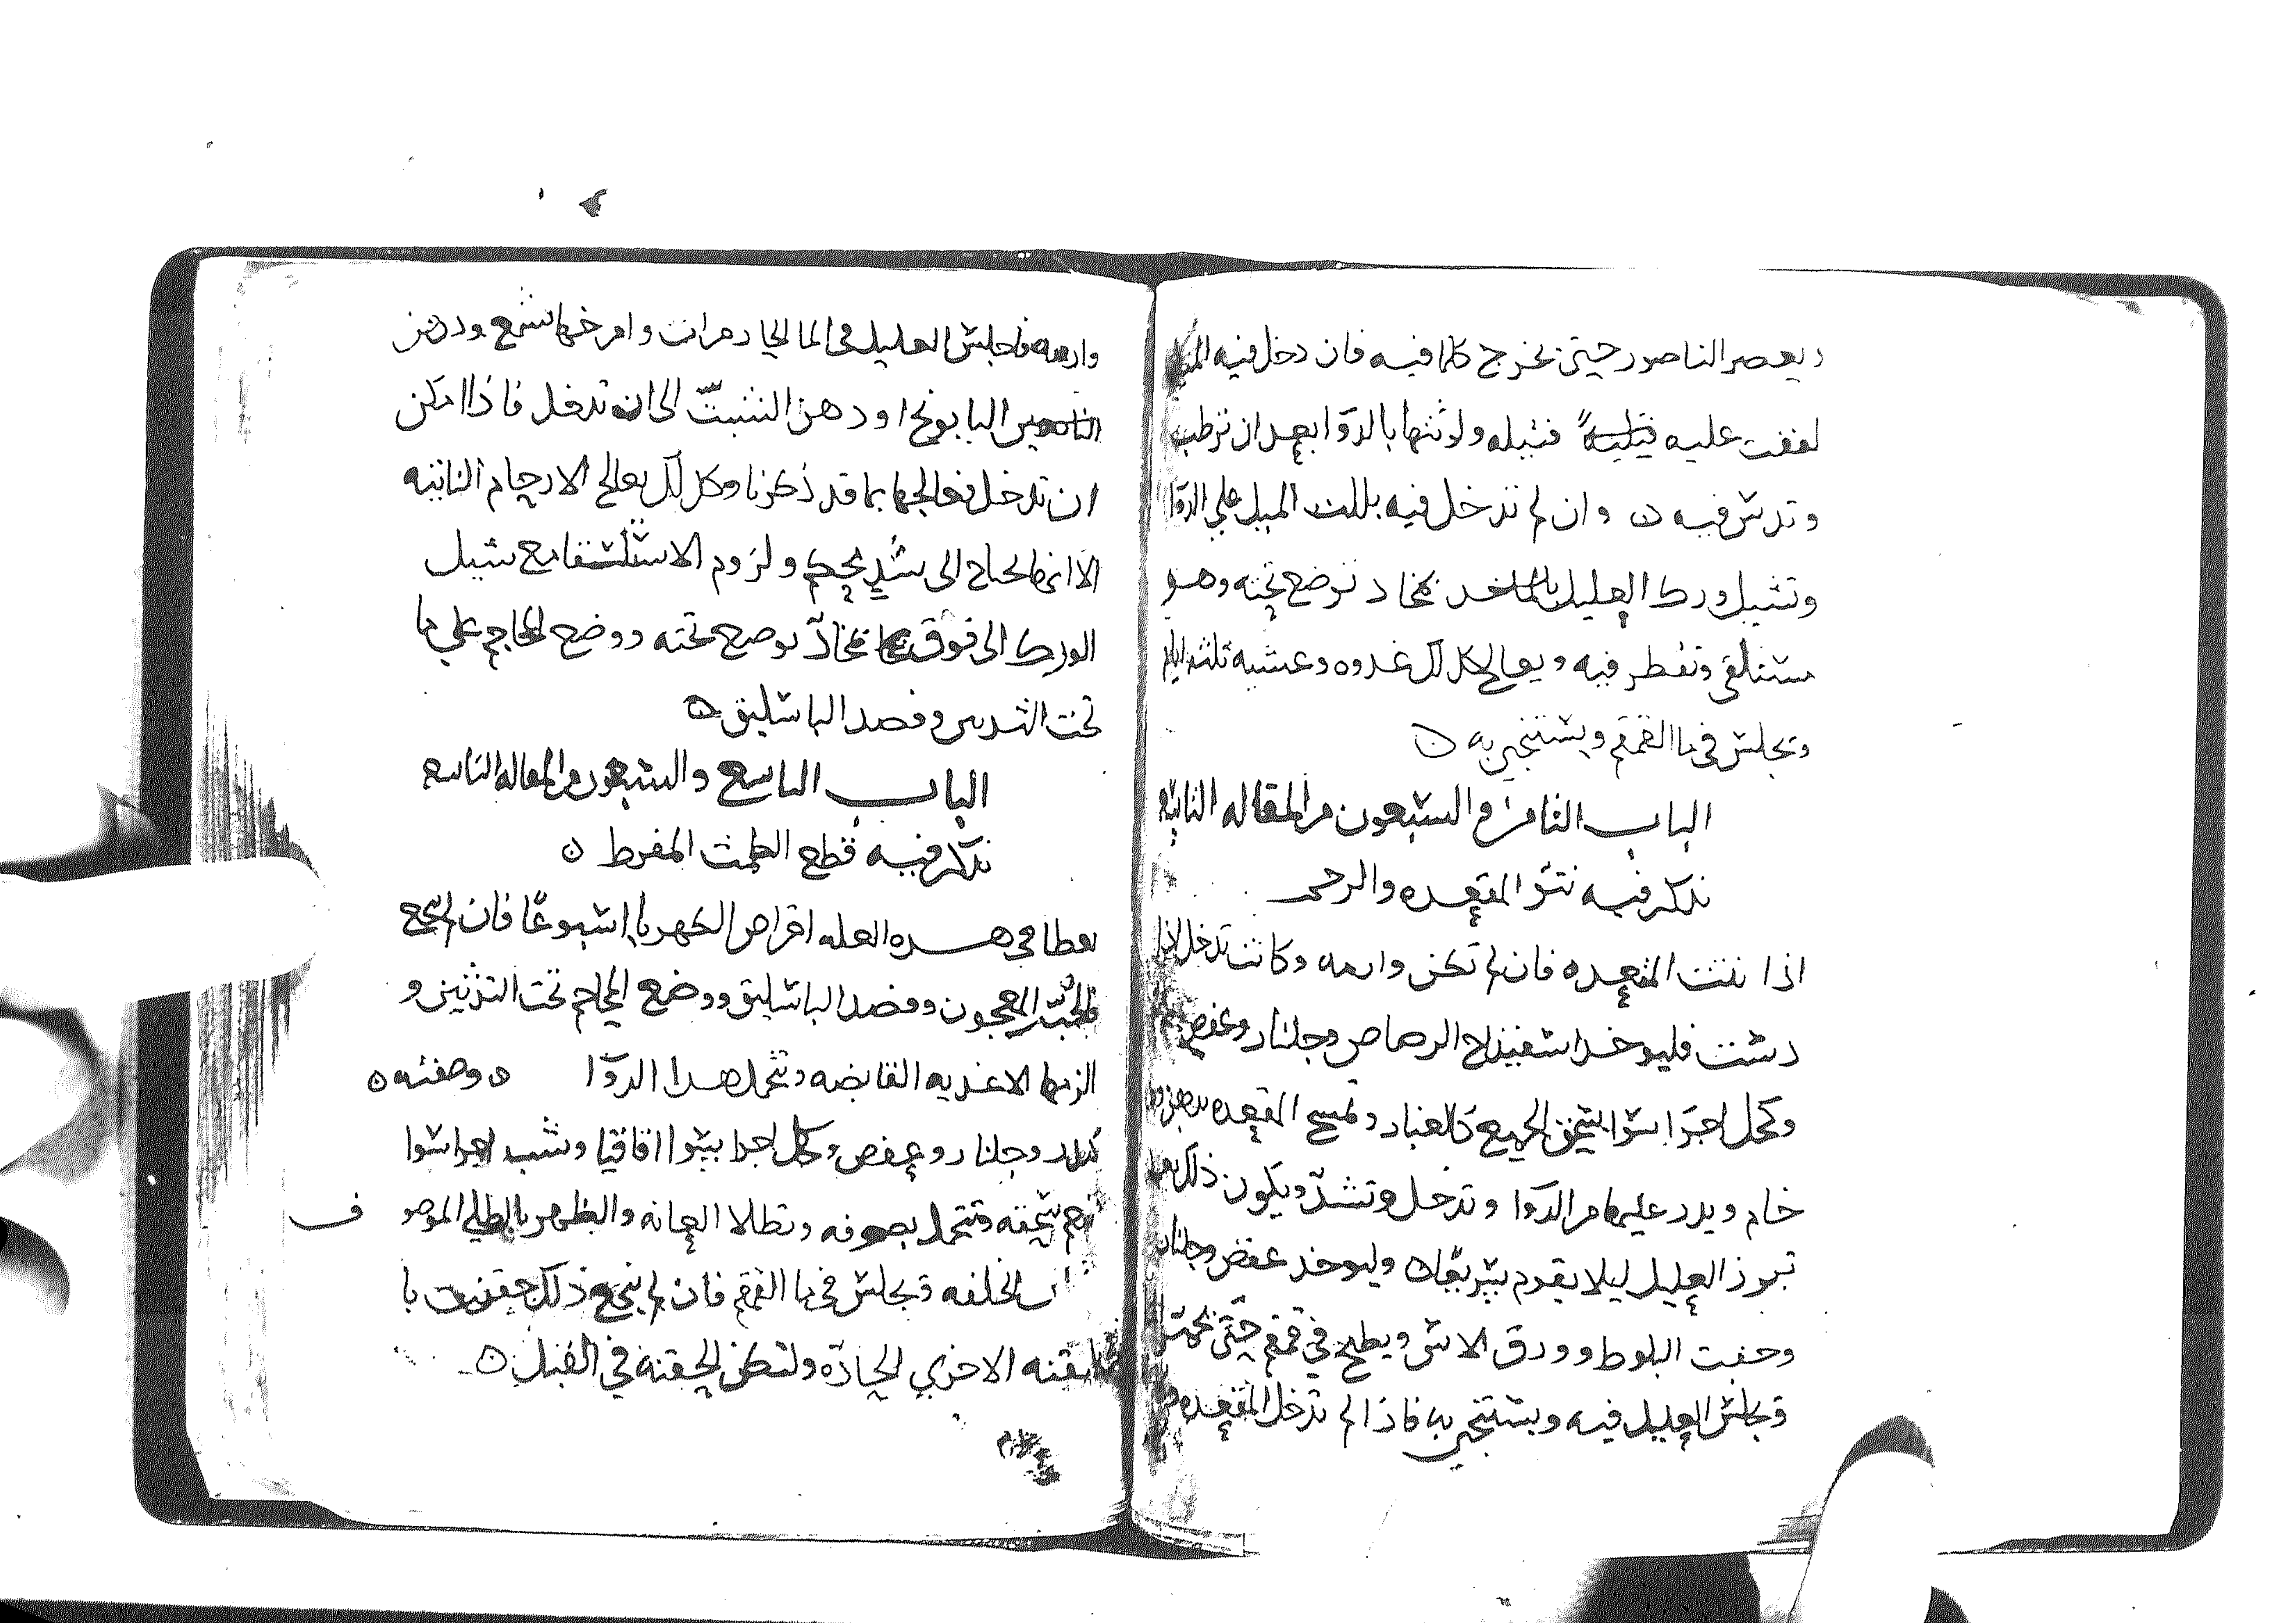 ويعصر الناصور حتى يخرج كلما فيه فان دخل فيه الميل
لففت عليه فتيله ولوثتها بالدوا بعد ان ترطب
وتدس فيه وان لم تدخل فيه بللت الميل علي الدوا
وتشيل ورك العليل بمخاد توضع تحته وهو
مستلقي وتقطر فيه ويعالج كذلك غدوه وعشيه ثلثه ايام
وتجلس في ما القمقم ويستنجي به
الباب الثامن والسبعون من المقاله الثانيه
نذكر فيه نتو المقعده والرحم
اذا نتت المقعده فان لم تكن وارمه وكانت تدخل اذا
دست فليوخذ اسفيذاج الرصاص وجلنار وعفص
وكحل اجزا سوا يسحق الجميع كالغبار وتمسح المقعده بدهن ورد
خام ويذر عليها من الدوا وتدخل وتشد ويكون ذلك بعد
تبرز العليل ليلا يقوم سريعا وليوخذ عفص وجلنار
وجفت البلوط وورق الاس ويطبخ في قمقم حتى يحمر
وتجلس العليل فيه ويستنجي به فاذا لم تدخل المقعده
وارمه فاجلس العليل في الما الحار مرات وامرخها بشمع ودهن
البابونج او دهن الشبت الى ان تدخل فاذا امكن
ان تدخل فعالجها بما قد ذكرنا وكذلك يعالج الارحام الناتيه
الا انها تحتاج الى شد محكم ولزوم الاستلقا مع شيل
الورك الى فوق بمخاد توضع تحته ووضع المحاجم علي ما
تحت الثديين وفصد الباسليق
الباب التاسع والسبعون من المقاله التاسع
نذكر فيه قطع الطمث المفرط
يعطا في هذه العله اقراص الكهربا اسبوعا فان لم ينجع
المعجون وفصد الباسليق ووضع المحاجم تحت الثديين و
الزمها الاغذيه القابضه وتحمل هذا الدوا وصفته
كندر وجلنار وعفص وكحل اجزا سوا اقاقيا وشب اجزا سوا
نعم سحقه وتتحمل بصوفه وتطلا العانه والظهر بالطلي الموصو ف
الخلفه وتجلس في ما القمقم فان لم ينجع ذلك حقنت با
لحقنه الاخري الحاده ولتكن الحقنه في القبل